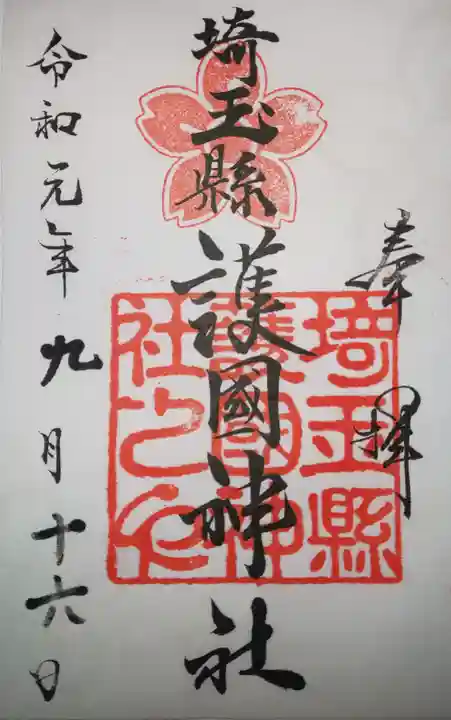 奉拝
埼玉縣護國神社
埼玉縣護國神社之印
令和元年九月十六日